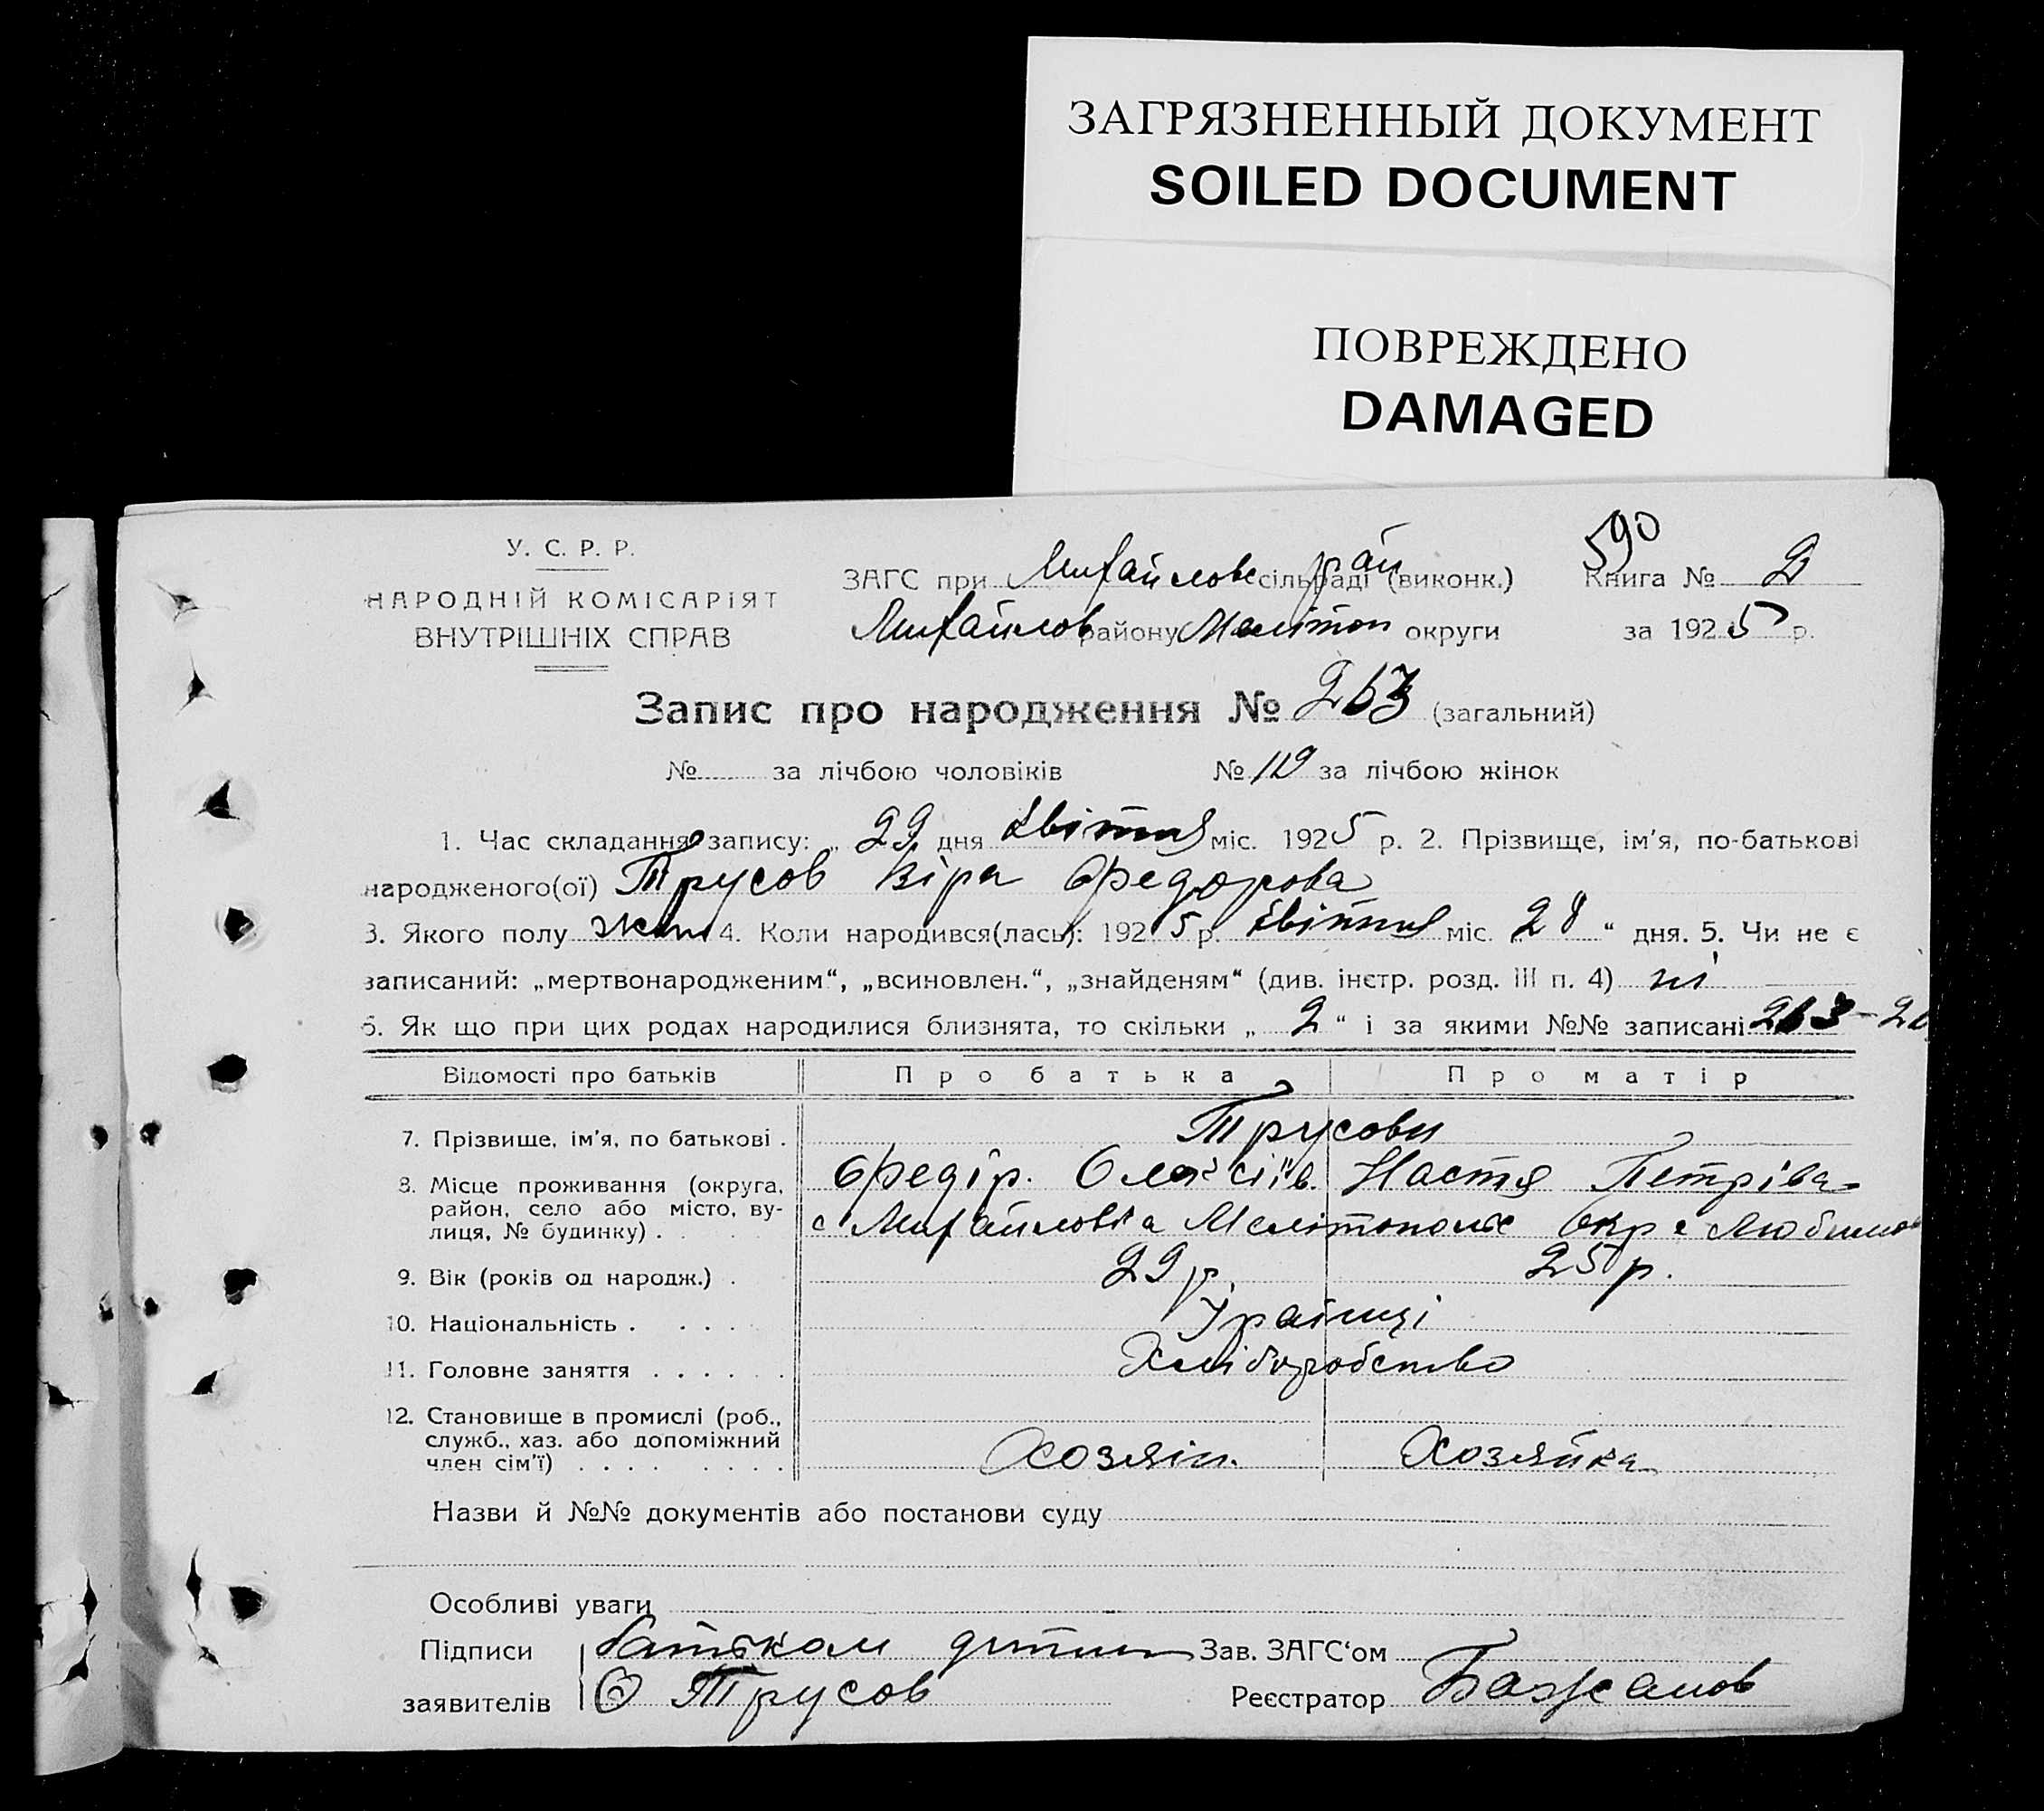 ЗАГРЯЗНЕННЫЙ ДОКУМЕНТ
SOILED DOCUMENT
ПОВРЕЖДЕНО
DAMAGED
590
У. С. Р. Р.
НАРОДНІЙ КОМІСАРІЯТ
ВНУТРІШНІХ СПРАВ
ЗАГС при Михайловс сільраді рай (виконк.) Книга № 2
Михайлов району Мелітоп округи за 1925 р.
Запис про народження № 263 (загальний)
№ за лічбою чоловіків № 119 за лічбою жінок
1. Час складання запису: „ 29 дня Квітня міс. 1925 р. 2. Прізвище, ім'я, по-батькові
народженого(ої) Трусов Віра Федорова
3. Якого полу жін 4. Коли народився(лась): 1925 р. Квітня міс. „ 28 “ дня. 5. Чи не є
записаний: „мертвонародженим“, „всиновлен.“, „знайденям“ (див. інстр. розд. III п. 4) ні
6. Як що при цих родах народилися близнята, то скільки „ 2 “ і за якими №№ записані 263-
Відомості про батьків Про батька Про матір
7. Прізвище, ім'я, по батькові . Трусови
Федір. Олексіїв. Настя Петрівa
8. Місце проживання (округа,
район, село або місто, вулиця, № будинку) . с Михайловка Мелітопольс Окр с
9. Вік (років од народж.) . 29 р. 25 р.
10. Національність . . . . . Українці
11. Головне заняття . . . . . . Хліборобство
12. Становище в промислі (роб.,
служб., хаз. або допоміжний
член сім'ї) . . . . . . . . Хозяін. Хозяйка
Назви й №№ документів або постанови суду
Особливі уваги
Підписи батьком дитини Зав. ЗАГС‘ом
заявителів Ф Трусов Реєстратор Бажанов